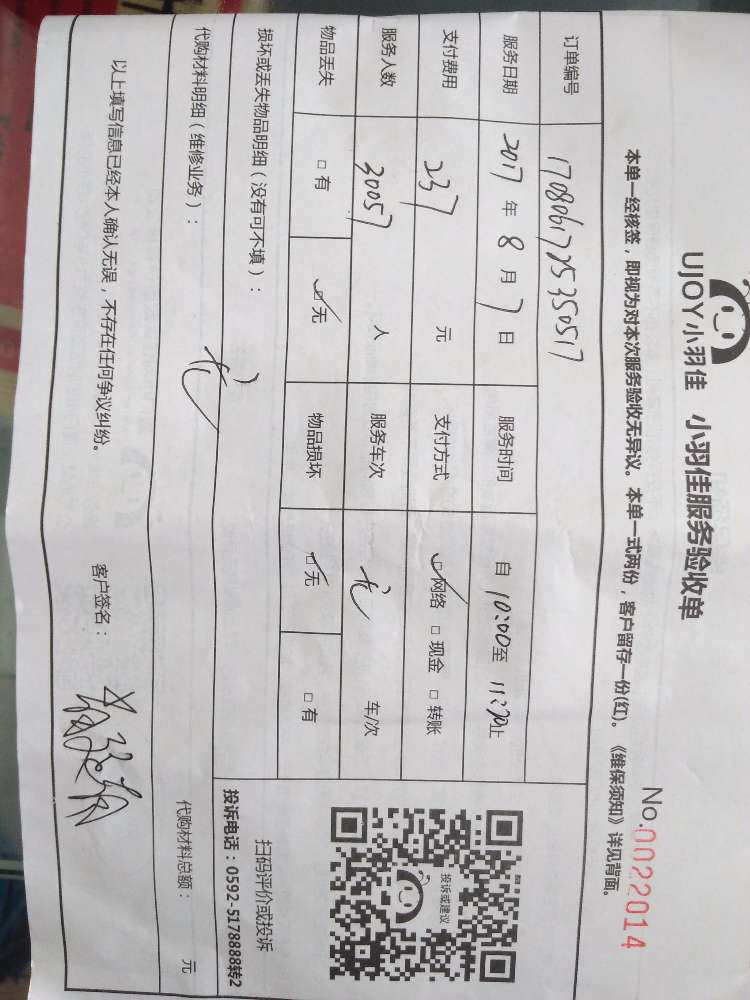 UJOY小羽佳 小羽佳服务验收单
No.0022014
本单一经核签，即视为对本次服务验收无异议。本单一式两份，客户留存一份(红)。《维保须知》详见背面。
订单编号 1708061725350517
服务日期 2017 年 8 月 7 日 服务时间 自 10:00 至 11:30 止
支付费用 237 元 支付方式 ☑网络 □现金 □转账
服务人数 30057 人 服务车次 无 车/次
物品丢失 □有 ☑无 物品损坏 ☑无 □有
投诉或建议
扫码评价或投诉
投诉电话：0592-5178888转2
损坏或丢失物品明细（没有可不填）：
代购材料明细（维修业务）： 无 代购材料总额： 元
以上填写信息已经本人确认无误，不存在任何争议纠纷。 客户签名：